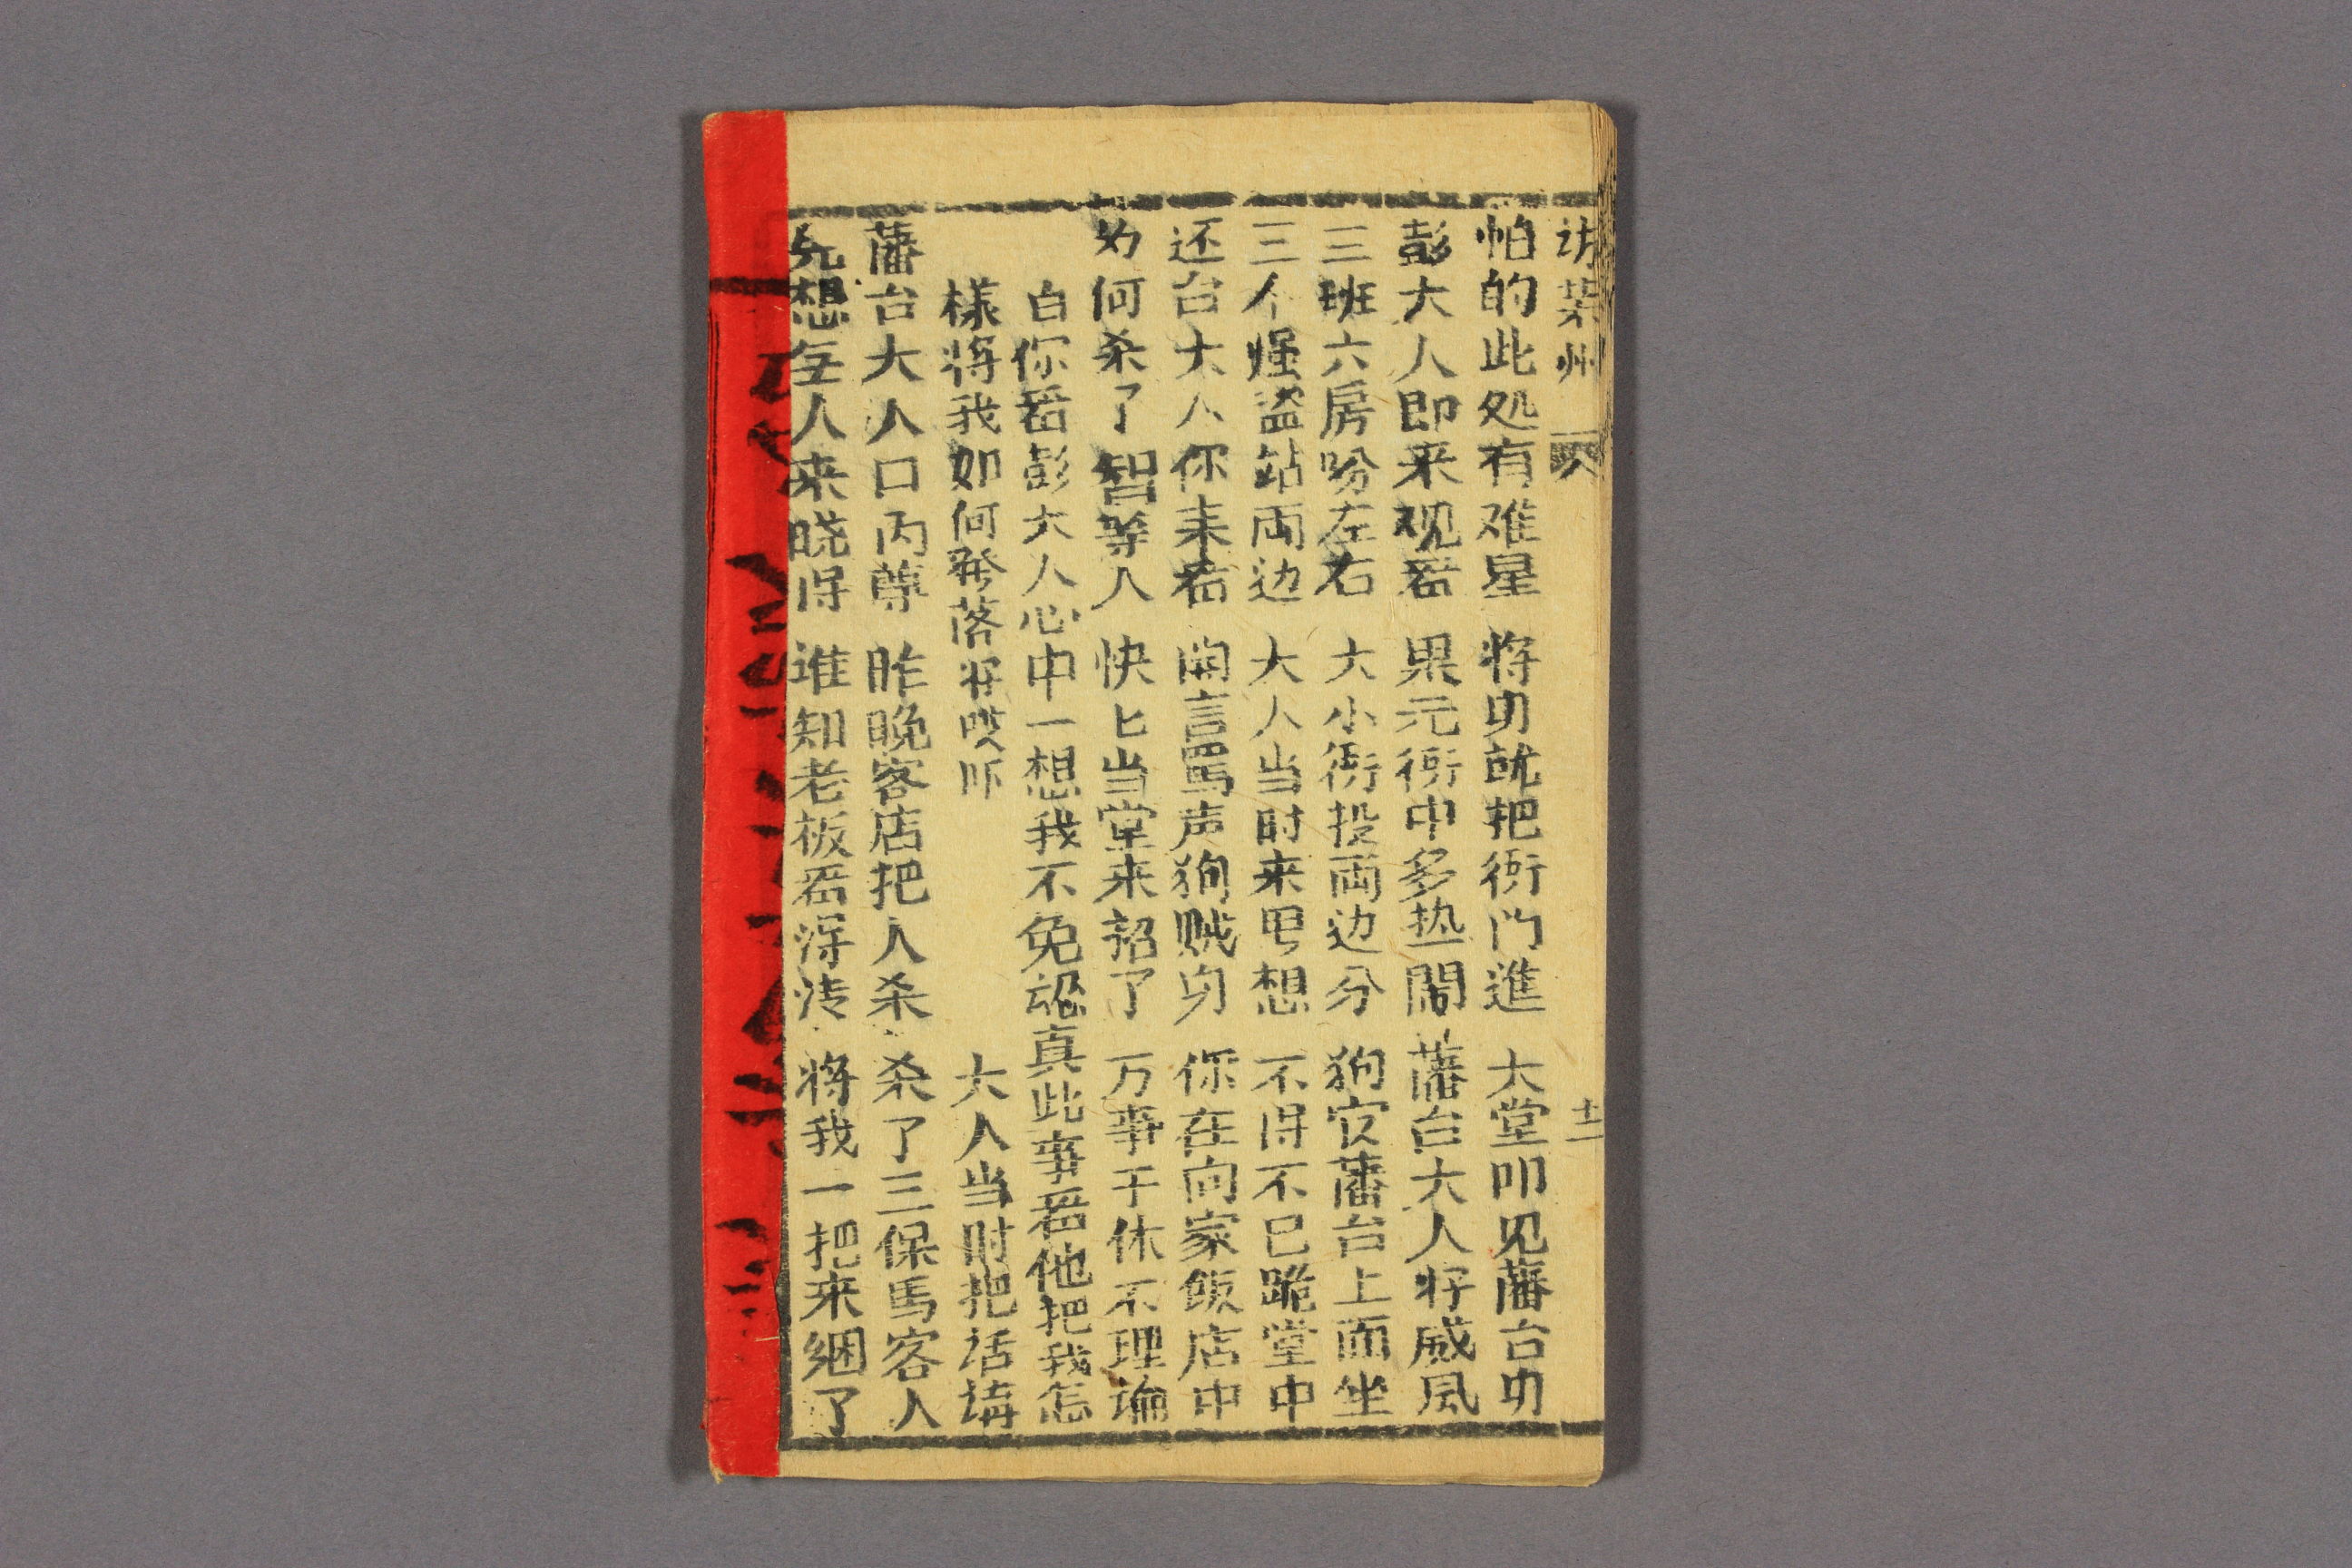 访某州 十一
怕的此処有难星 将身就把衙门進 大堂叩见藩台身
彭大人即来观看 果元衙中多热闹 藩台大人好威風
三班六房吩左右 大小衙投両边分 狗官藩台上面坐
三个强盗站両边 大人当时来思想 不得不已跪堂中
还台大人你来看 開言罵声狗贼身 你在向家飯店中
为何杀了智等人 快匕当堂来招了 万事干休不理論
白你看彭大人心中一想我不免認真此事看他把我怎
樣将我如何發落将哎吓 大人当时把话講
藩台大人口内尊 昨晚客店把人杀 杀了三保馬客人
先想無人来晓得 谁知老板看得清 将我一把来綑了